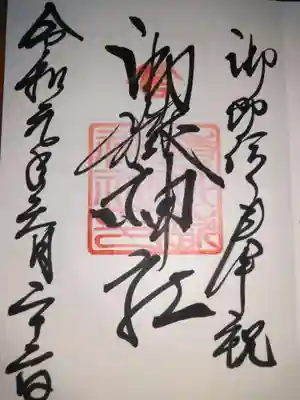 御即位奉祝
御嶽神社
令和元年五月二十二日